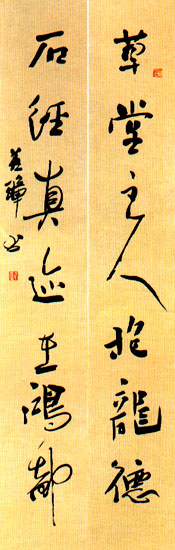 草堂主人抱龍德
石經真迹重鴻都
书